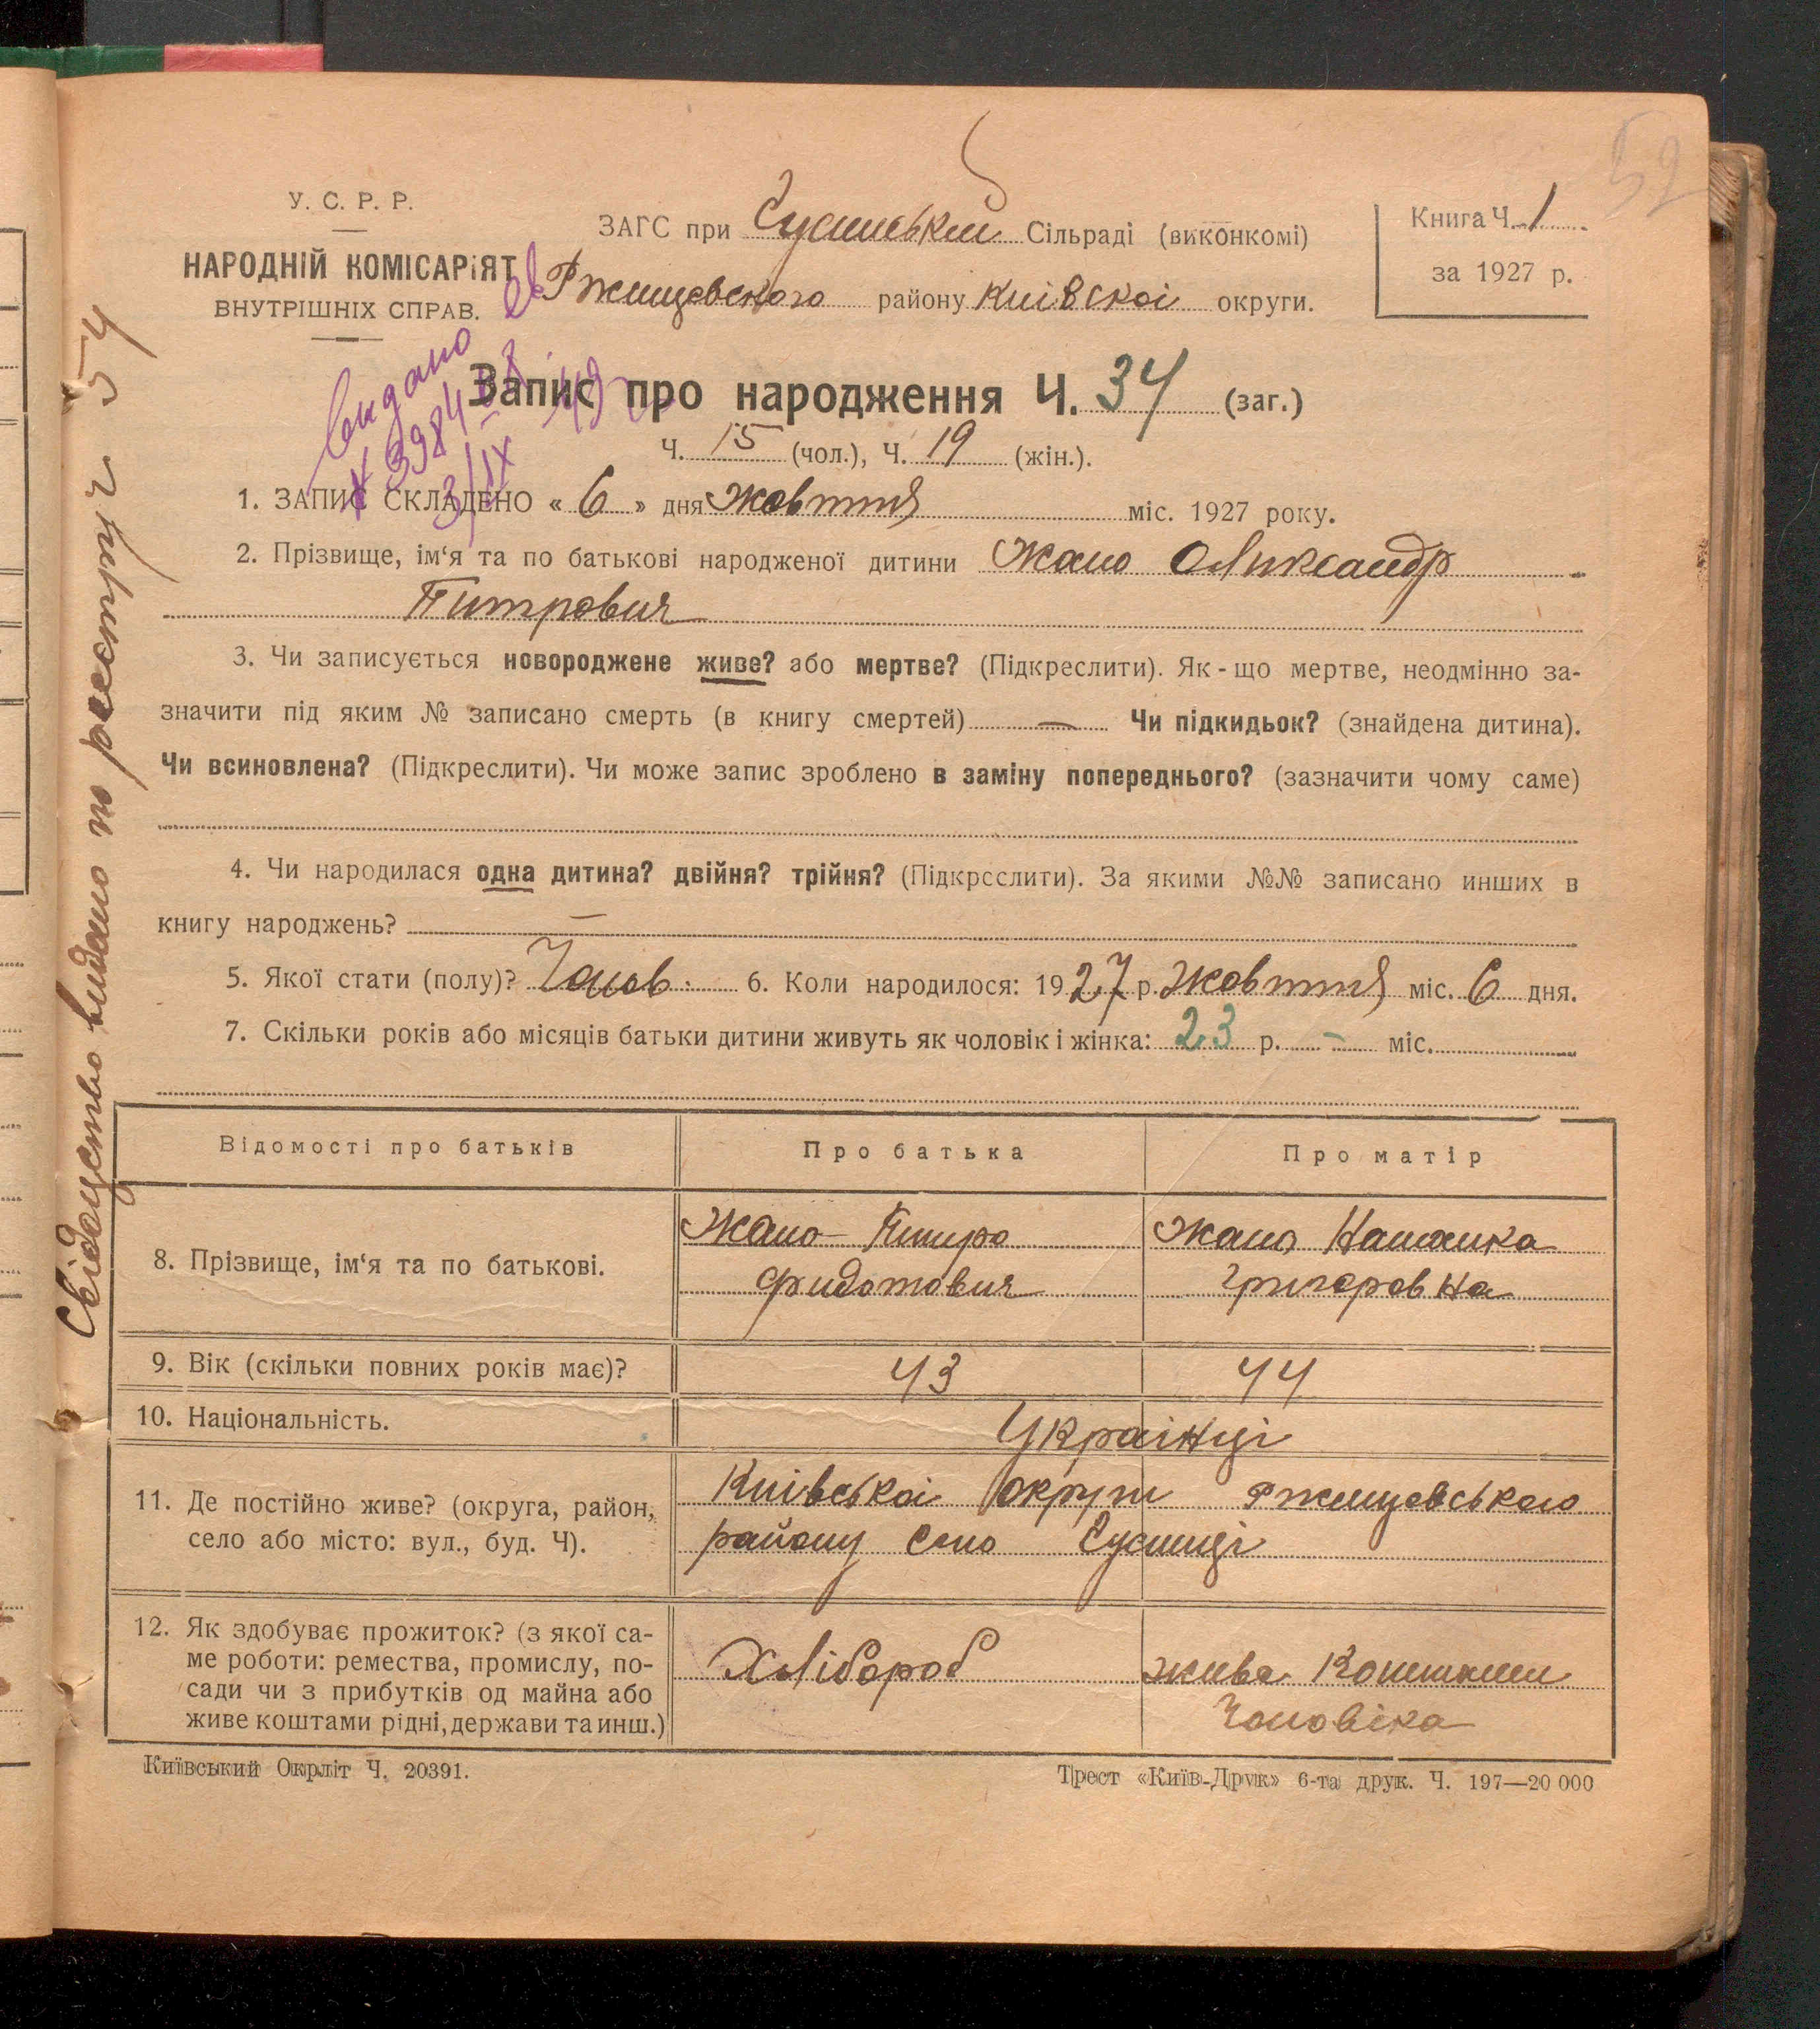 52
У. С. Р. Р.
НАРОДНІЙ КОМІСАРІЯТ
ВНУТРІШНІХ СПРАВ.
ЗАГС при Сущаньскій Сільраді (виконкомі)
Ржищевского району Київскоі округи.
Книга Ч. 1
за 1927 р.
Видано
3/IX
Запис про народження Ч. 34 (заг.)
Ч. 15 (чол.), Ч. 19 (жін.).
1. ЗАПИС СКЛАДЕНО « 6 » дня Жовтня міс. 1927 року.
2. Прізвище, ім‘я та по батькові народженої дитини Жало Олександр
Питрович
3. Чи записується новороджене живе? або мертве? (Підкреслити). Як - що мертве, неодмінно за-
значити під яким № записано смерть (в книгу смертей) — Чи підкидьок? (знайдена дитина).
Чи всиновлена? (Підкреслити). Чи може запис зроблено в заміну попереднього? (зазначити чому саме)
4. Чи народилася одна дитина? двійня? трійня? (Підкреслити). За якими №№ записано инших в
книгу народжень? —
5. Якої стати (полу)? Чолов. 6. Коли народилося: 1927 р. Жовтня міс. 6 дня.
7. Скільки років або місяців батьки дитини живуть як чоловік і жінка: 23 р. - міс.
Відомості про батьків Про батька Про матір
8. Прізвище, ім‘я та по батькові.
Жало Питро
Фидотович
Жало Наталка
Григоровна
9. Вік (скільки повних років має)? 43 44
10. Національність. Українці
11. Де постійно живе? (округа, район,
село або місто: вул., буд. Ч).
Київськоі округи Ржищевського
району село
12. Як здобуває прожиток? (з якої са-
ме роботи: ремества, промислу, по-
сади чи з прибутків од майна або
живе коштами рідні, держави та инш.)
Хлібороб
живе Коштами
Чоловіка
Київський Окрліт Ч. 20391.
Трест «Київ-Друк» 6-та друк. Ч. 197—20 000
Свідоцтво видано по реєстру ч 54